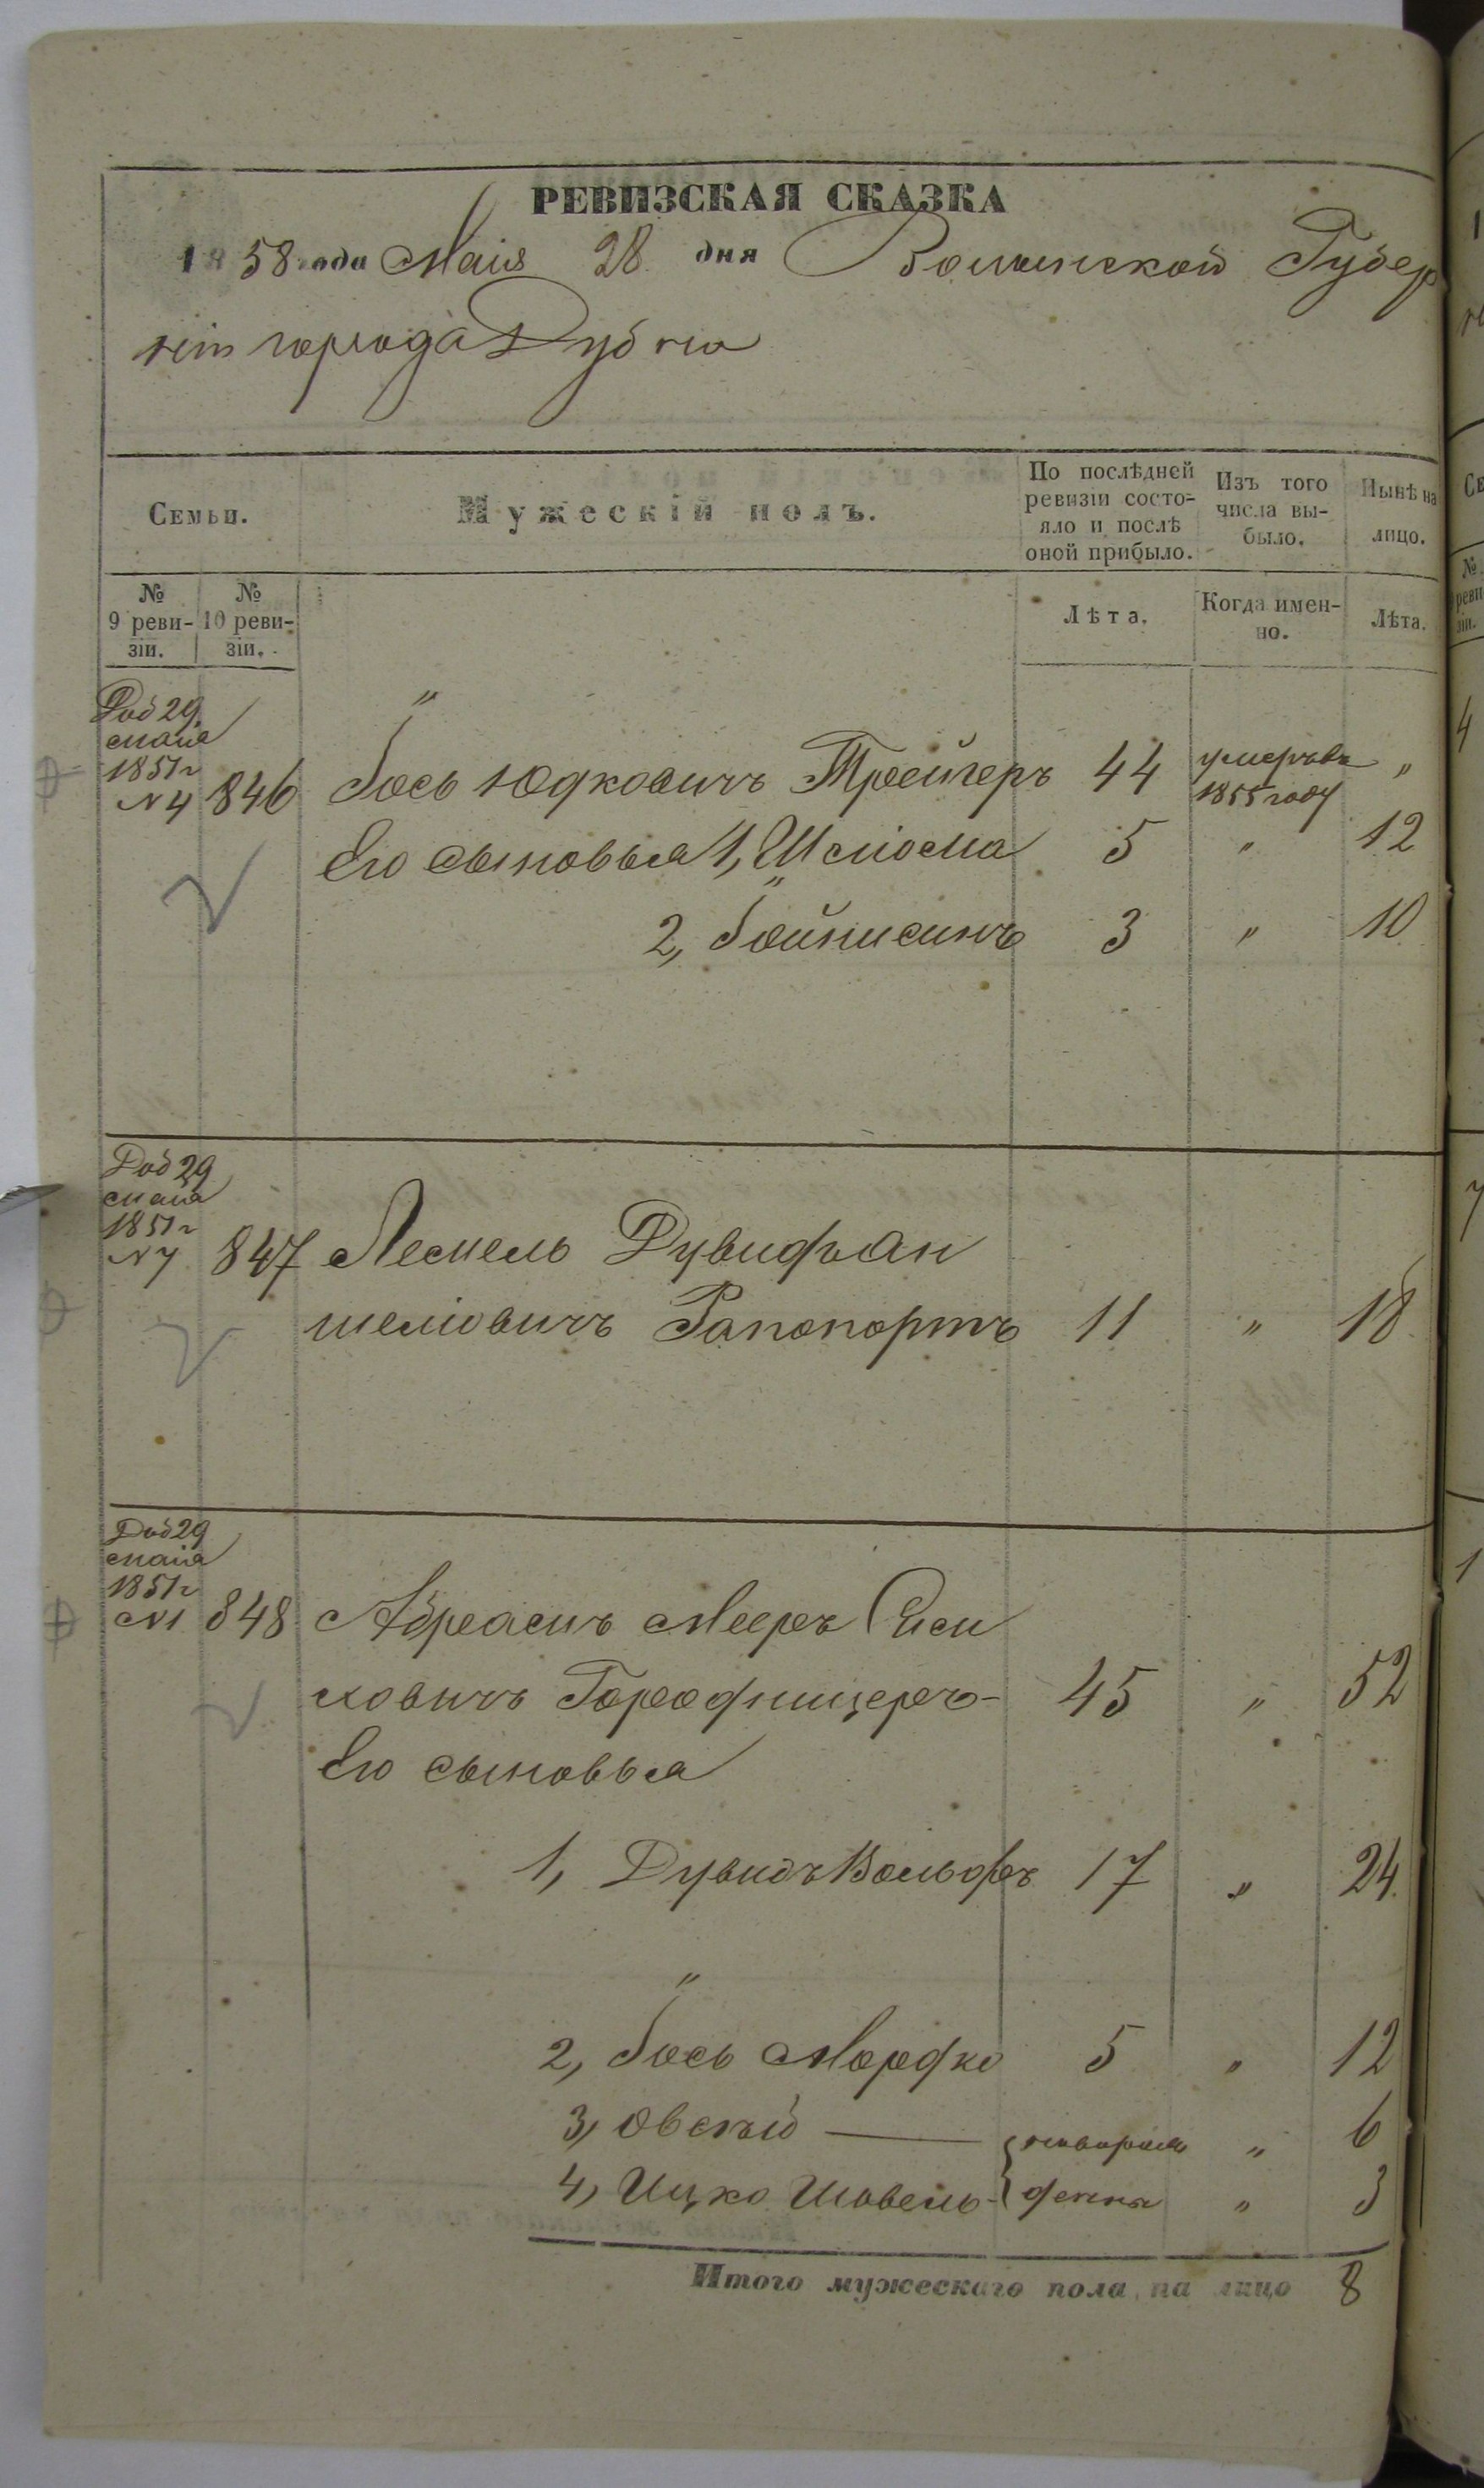 РЕВИЗСКАЯ СКАЗКА
1858 года Маія 28 дня Волынской Губер
ніи города Дубно
Семьи.
Мужескій полъ.
По послѣдней ревизіи состо-
яло и послѣ оной прибыло.
Изъ того числа вы-
было.
Нынѣ на лицо.
№ 9 реви-
зіи.
№ 10 реви-
зіи.
Лѣта.
Когда имен-
но.
Лѣта.
Доб 29
маія
1851 г
N 4 846 Іось Юдковичъ Трейгеръ 44 умеръ въ 1855 году "
Его сыновья 1, Шліома 5 " 12
2, 3 " 10
Доб 29
маія
1851 г
N 7 847 Лемель Дувидъ Ан
шеліовичъ Рапопортъ 11 " 18
Доб 29
маія
1851 г
N 1 848 Абрамъ Мееръ
ковичъ 45 " 52
Его сыновья
1, Дувидъ Вольфъ 17 " 24
2, Іось Мордко 5 " 12
3, Овсѣй — новорож " 6
4, Ицко денны " 3
Итого мужескаго пола на лицо 8